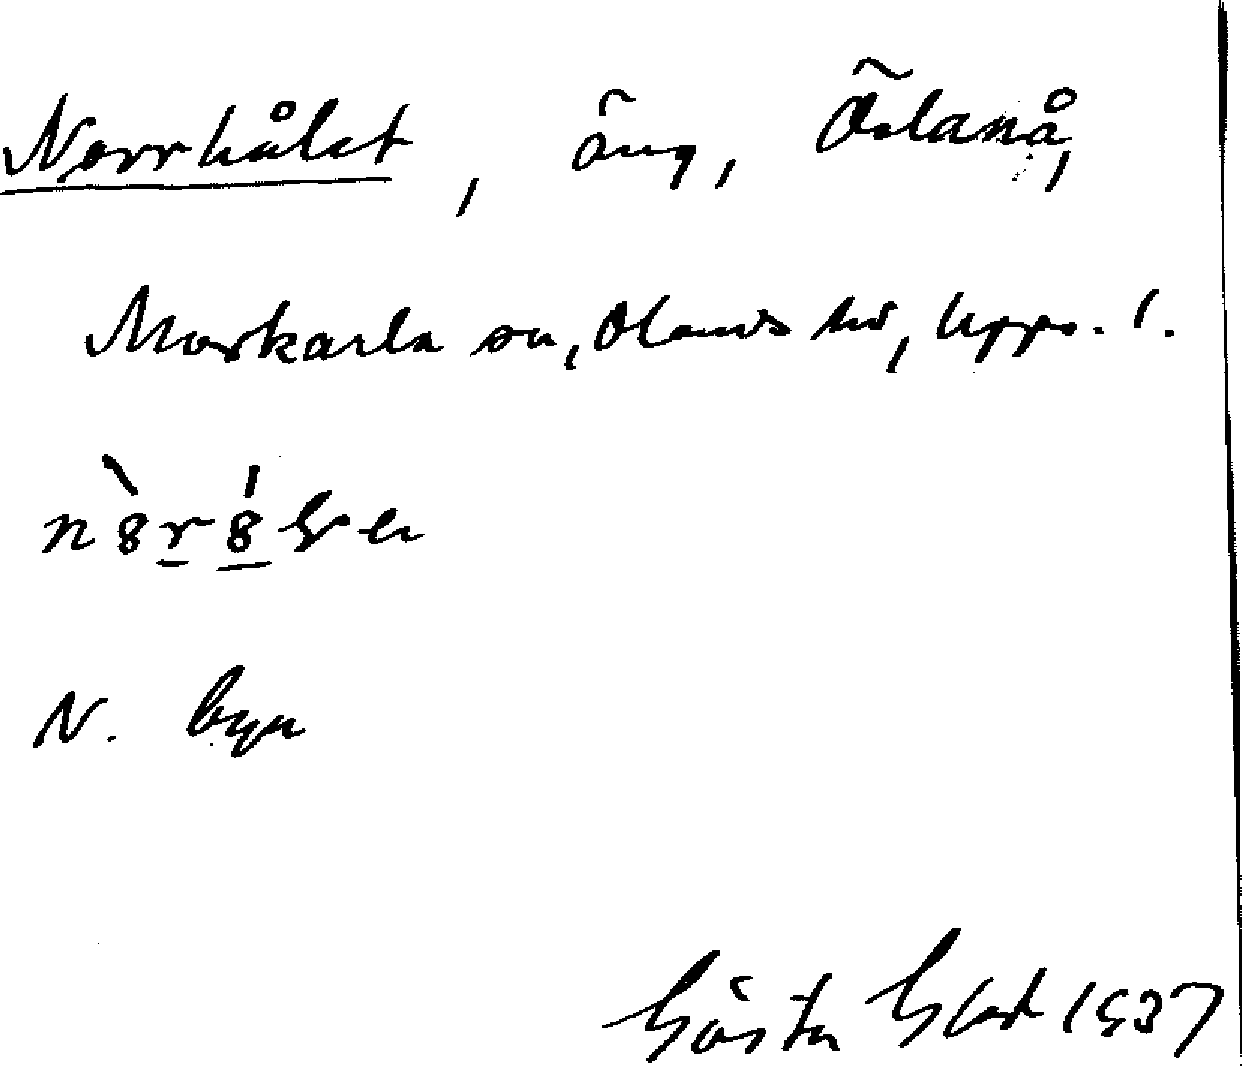 Norrhålet, äng, Ölanå,
Morkarla sn, Olands hd, Upps. l.
N. byn
Gösta Glad 1937